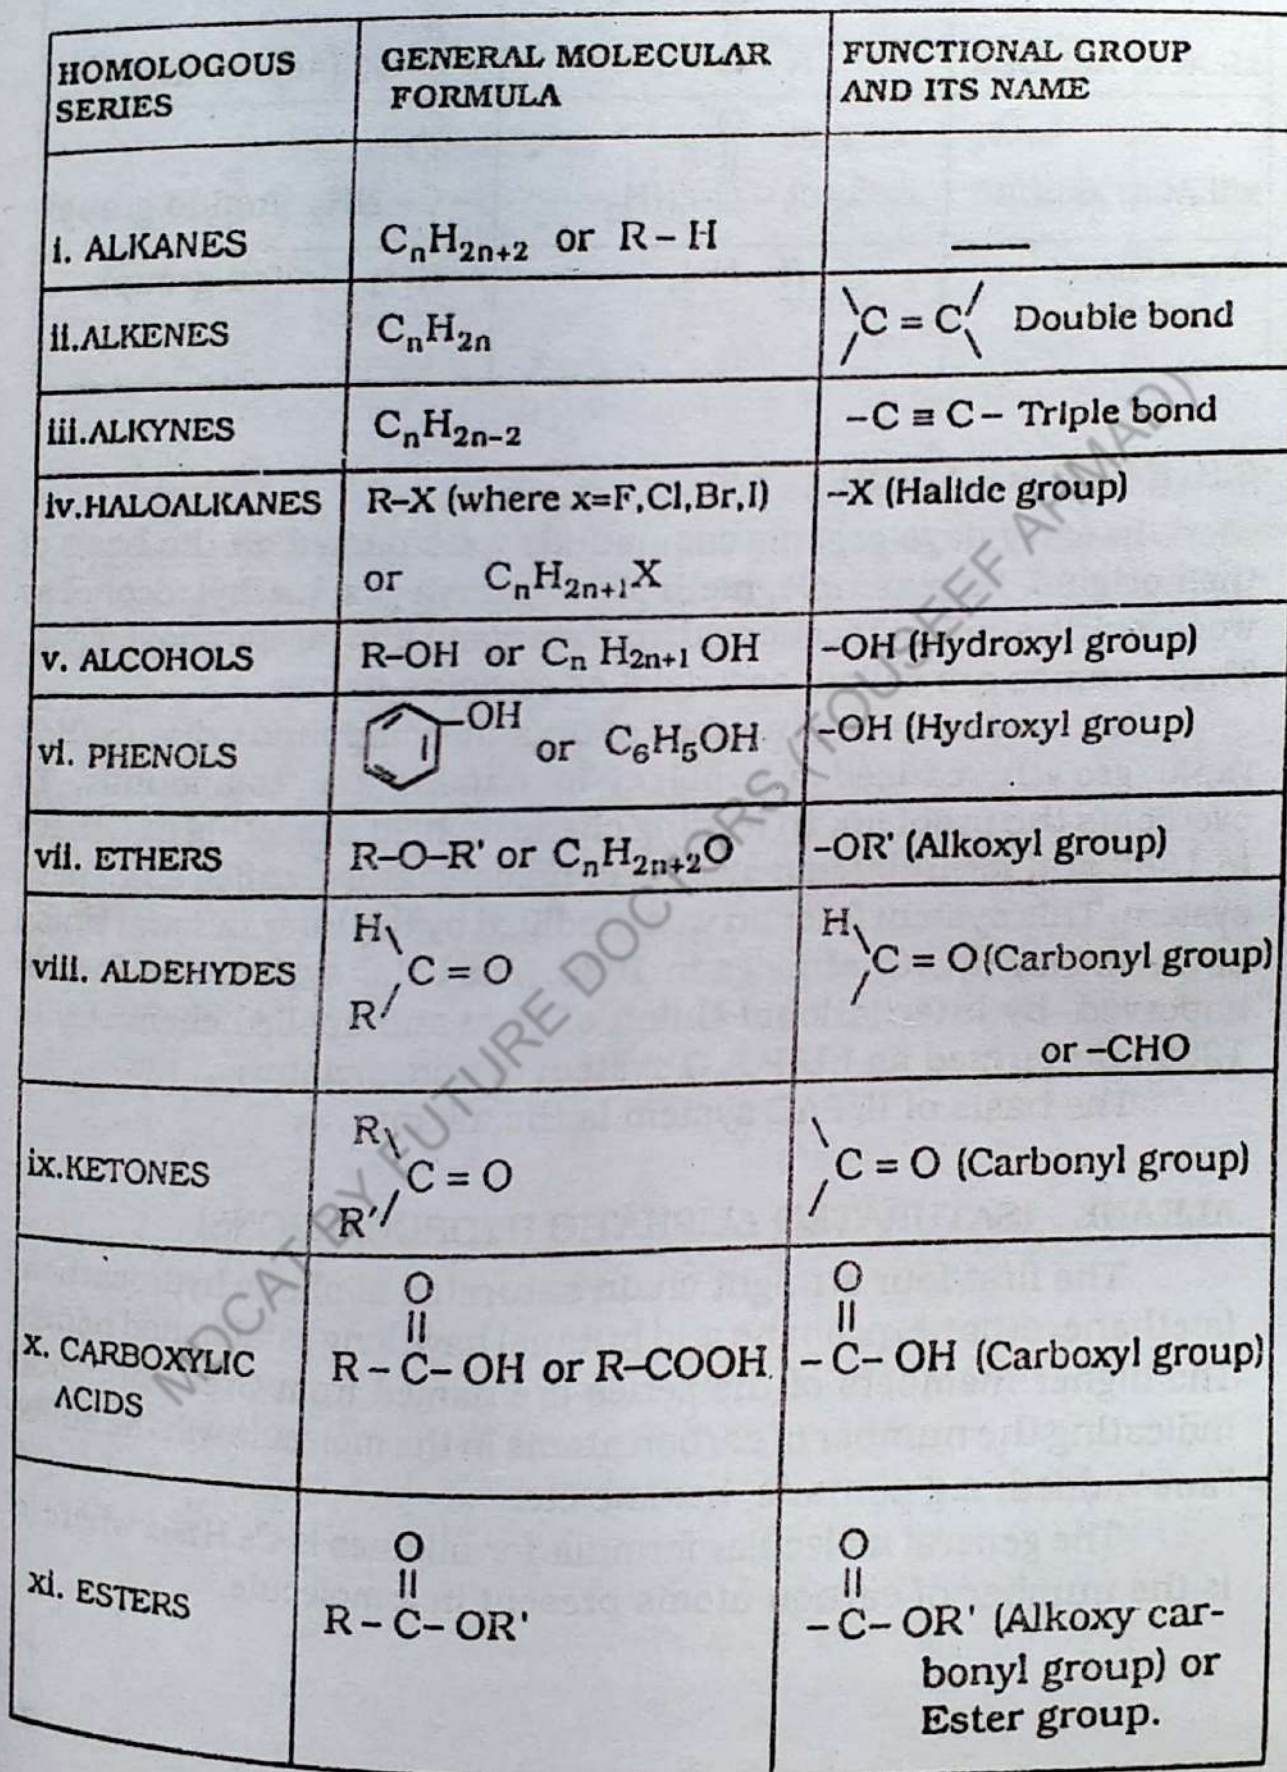 HOMOLOGOUS SERIES | GENERAL MOLECULAR FORMULA | FUNCTIONAL GROUP AND ITS NAME
i. ALKANES | CₙH₂ₙ₊₂ or R – H | ——
ii.ALKENES | CₙH₂ₙ | C = C Double bond
iii.ALKYNES | CₙH₂ₙ₋₂ | –C ≡ C – Triple bond
iv.HALOALKANES | R–X (where x=F,Cl,Br,I) | –X (Halide group)
or CₙH₂ₙ₊₁X
v. ALCOHOLS | R–OH or Cₙ H₂ₙ₊₁ OH | –OH (Hydroxyl group)
vi. PHENOLS | –OH or C₆H₅OH | –OH (Hydroxyl group)
vii. ETHERS | R–O–R' or CₙH₂ₙ₊₂O | –OR' (Alkoxyl group)
H | H
viii. ALDEHYDES | C = O | C = O (Carbonyl group)
R | or –CHO
R
ix.KETONES | C = O | C = O (Carbonyl group)
R'
O | O
|| | ||
x. CARBOXYLIC ACIDS | R – C– OH or R–COOH. | – C– OH (Carboxyl group)
O | O
|| | ||
xi. ESTERS | R – C– OR' | – C– OR' (Alkoxy car-
bonyl group) or
Ester group.
MDCAT BY FUTURE DOCTORS (TOUSEEF AHMAD)